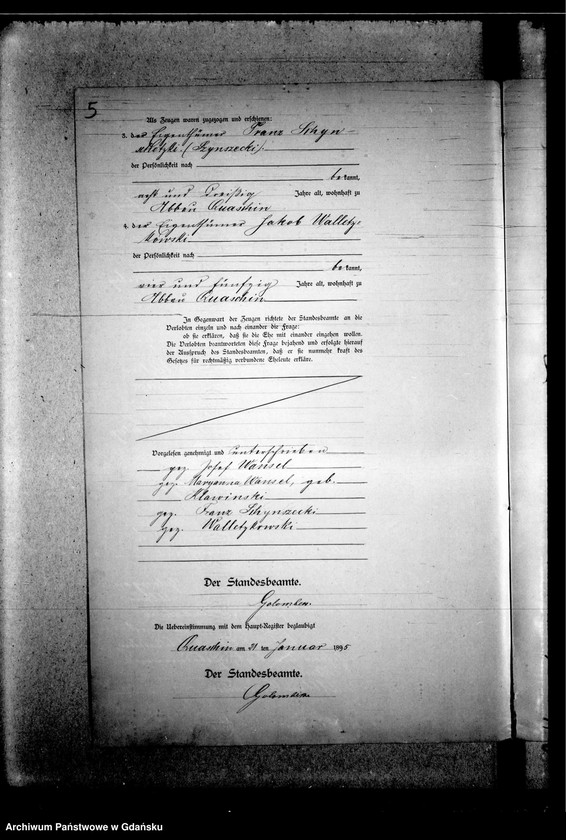 5
Als Zeugen waren zugezogen und erschienen:
3. der Eigenthümer Franz Schyn-
(Szynszecki)
der Persönlichkeit nach
bekannt,
acht und dreißig Jahre alt, wohnhaft zu
Abbau Quaschin
4. der Eigenthümer Jakob Walletz-
kowski
der Persönlichkeit nach
bekannt,
vier und fünfzig Jahre alt, wohnhaft zu
Abbau Quaschin
In Gegenwart der Zeugen richtete der Standesbeamte an die
Verlobten einzeln und nach einander die Frage:
ob sie erklären, daß sie die Ehe mit einander eingehen wollen.
Die Verlobten beantworteten diese Frage bejahend und erfolgte hierauf
der Ausspruch des Standesbeamten, daß er sie nunmehr kraft des
Gesetzes für rechtmäßig verbundene Eheleute erkläre.
Vorgelesen genehmigt und unterschrieben
gez. Josef Wansel
gez. Maryanna Wansel, geb.
Klawinski
gez. Franz Schynszecki
gez. Walletzkowski
Der Standesbeamte.
Golombek.
Die Uebereinstimmung mit dem Haupt-Register beglaubigt
Quaschin am 21 ten Januar 1895
Der Standesbeamte.
Golombek
Archiwum Państwowe w Gdańsku